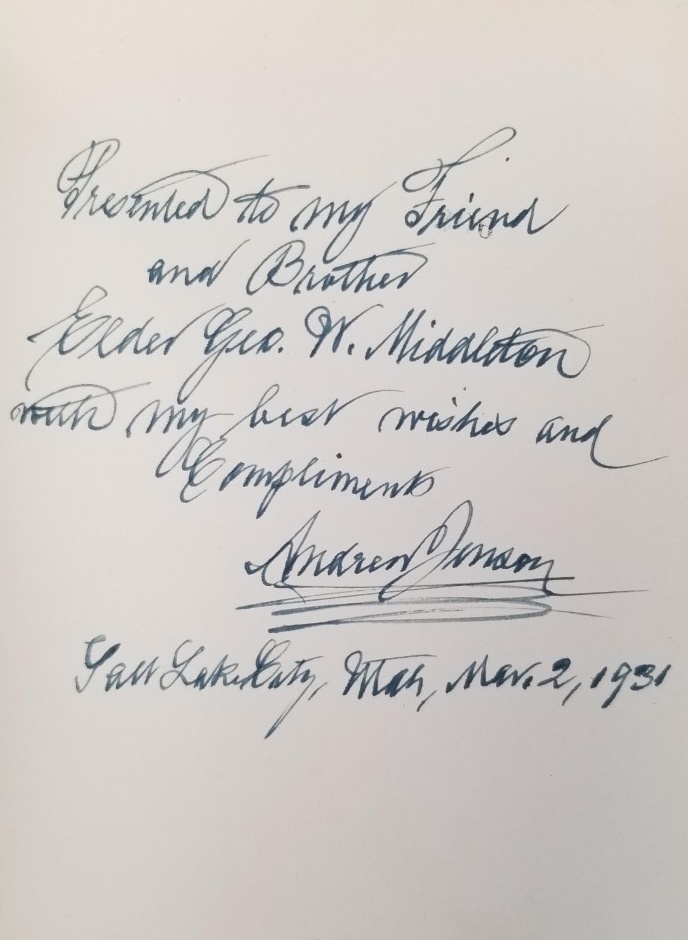 Presented to my Friend
and Brother
Elder Geo. W. Middleton
with my best wishes and
Compliments
Andrew Jenson
Salt Lake City, Utah, Mar. 2, 1931